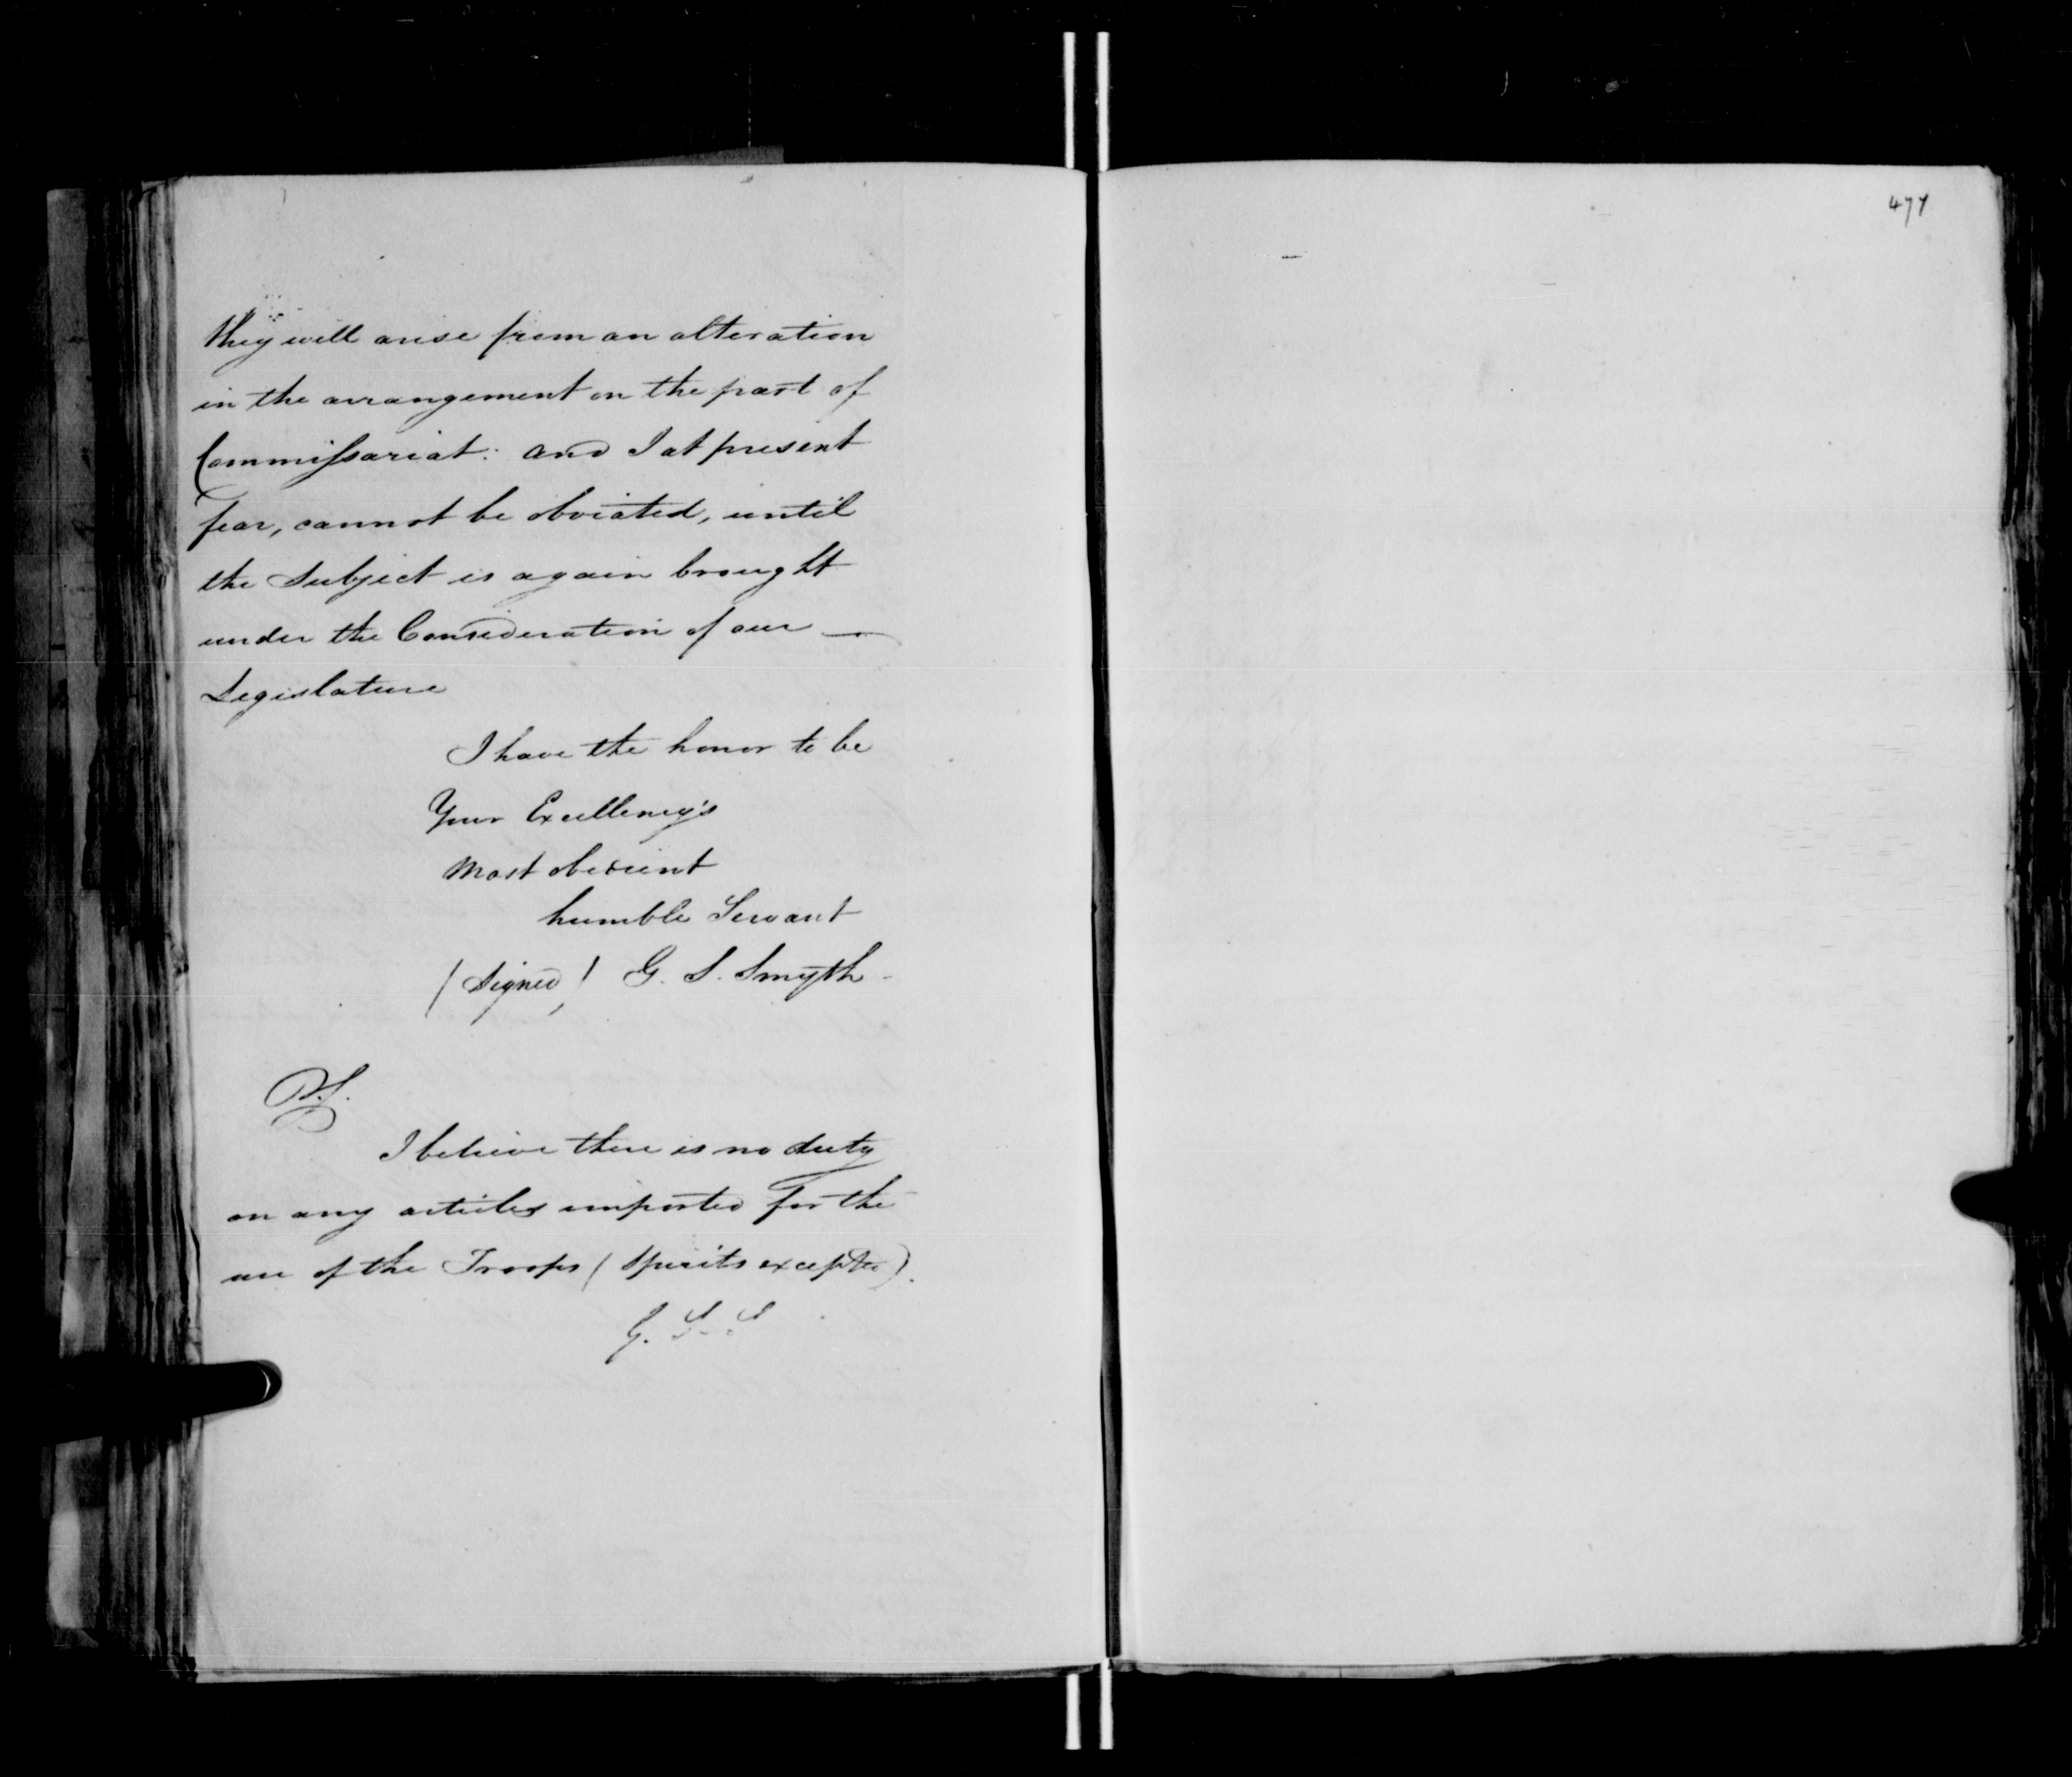 they will arise from an alteration
in the arrangement on the part of
Commissariat: and I at present
fear, cannot be obviated, until
the Subject is again brought
under the Consideration of our —
Legislature
I have the honor to be
Your Excellency's
Most obedient
humble Servant
(Signed) G. S. Smyth
P.S.
I believe there is no duty
on any articles imported for the
use of the Troops (Spirits excepted).
G. S. S
477